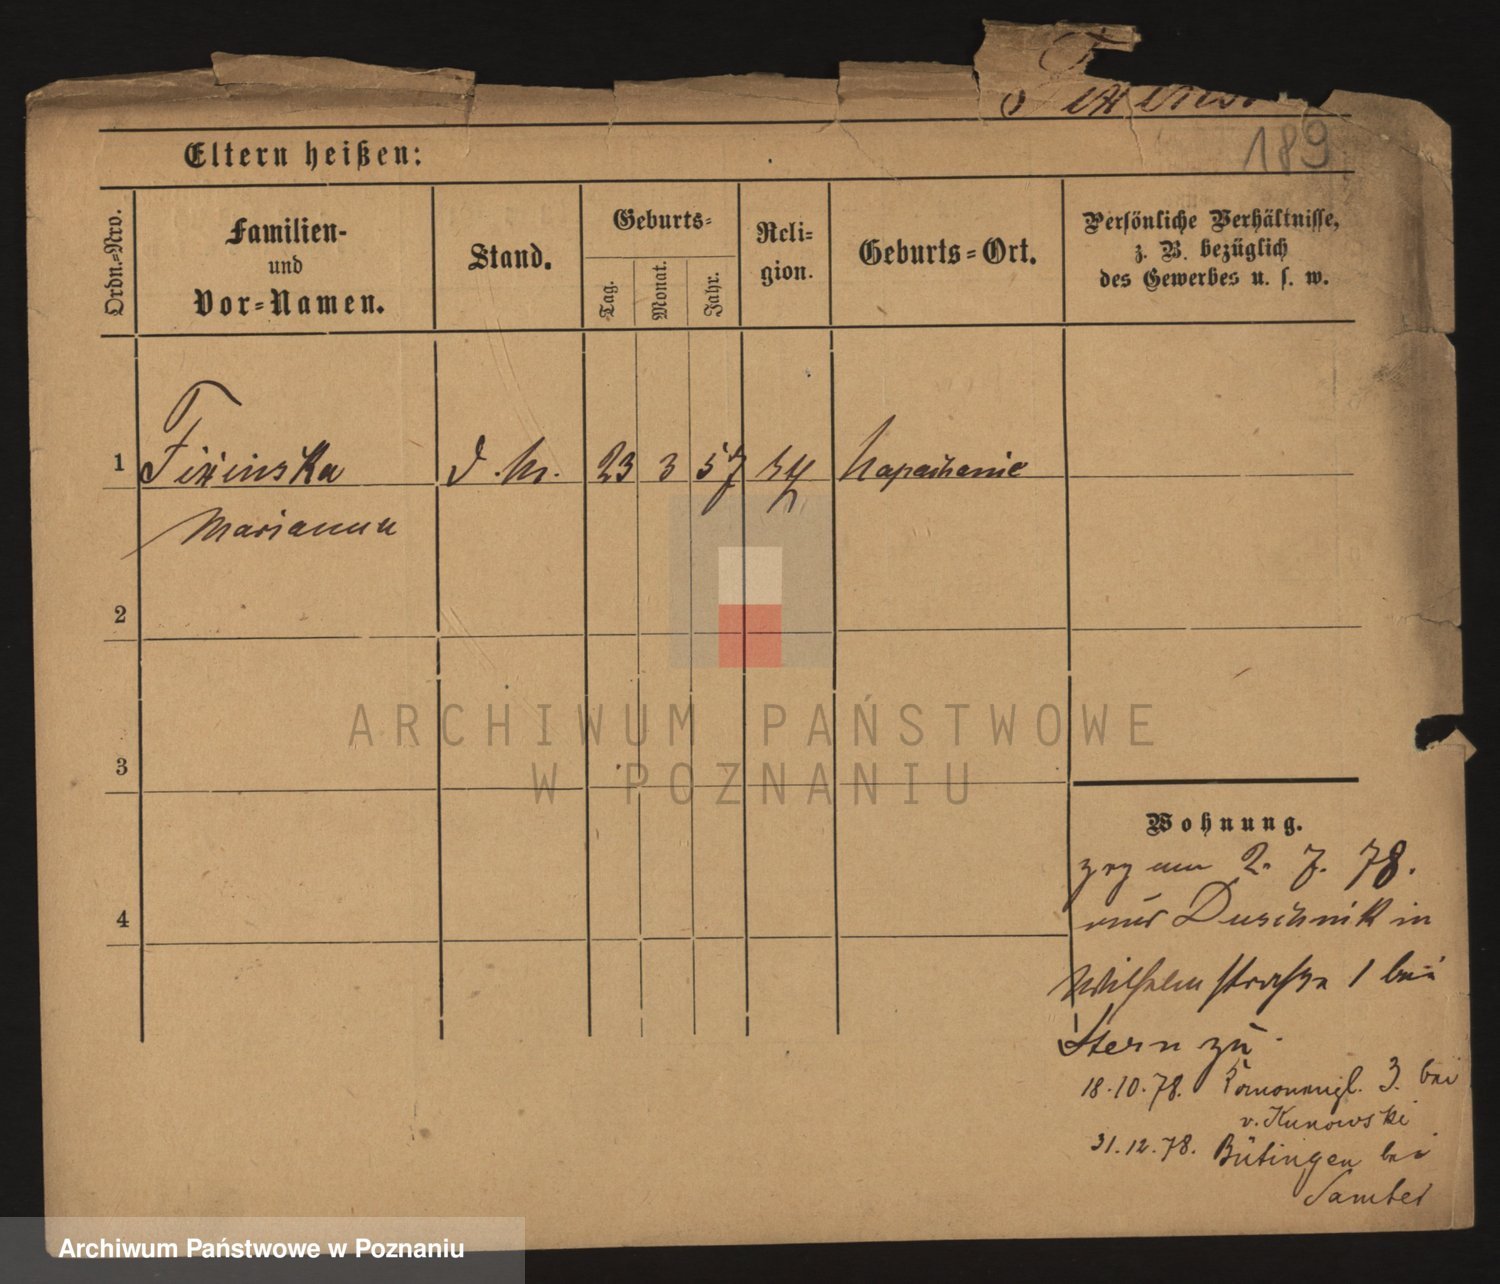 189
Eltern heißen:
Ordn.=Nro.
Familien-
und
Vor=Namen.
Stand.
Geburts=
Tag.
Monat.
Jahr.
Reli=
gion.
Geburts=Ort.
Persönliche Verhältnisse,
z. B. bezüglich
des Gewerbes u. s. w.
1
23 3 57
Marianna
2
3
4
ARCHIWUM PAŃSTWOWE
W POZNANIU
Wohnung.
2. 7. 78.
aus Duschnik in
Wilhelmstraße 1 bei
Stern zu
18.10.78. 3. bei
v. Kunowski
31.12.78. bei
Archiwum Państwowe w Poznaniu